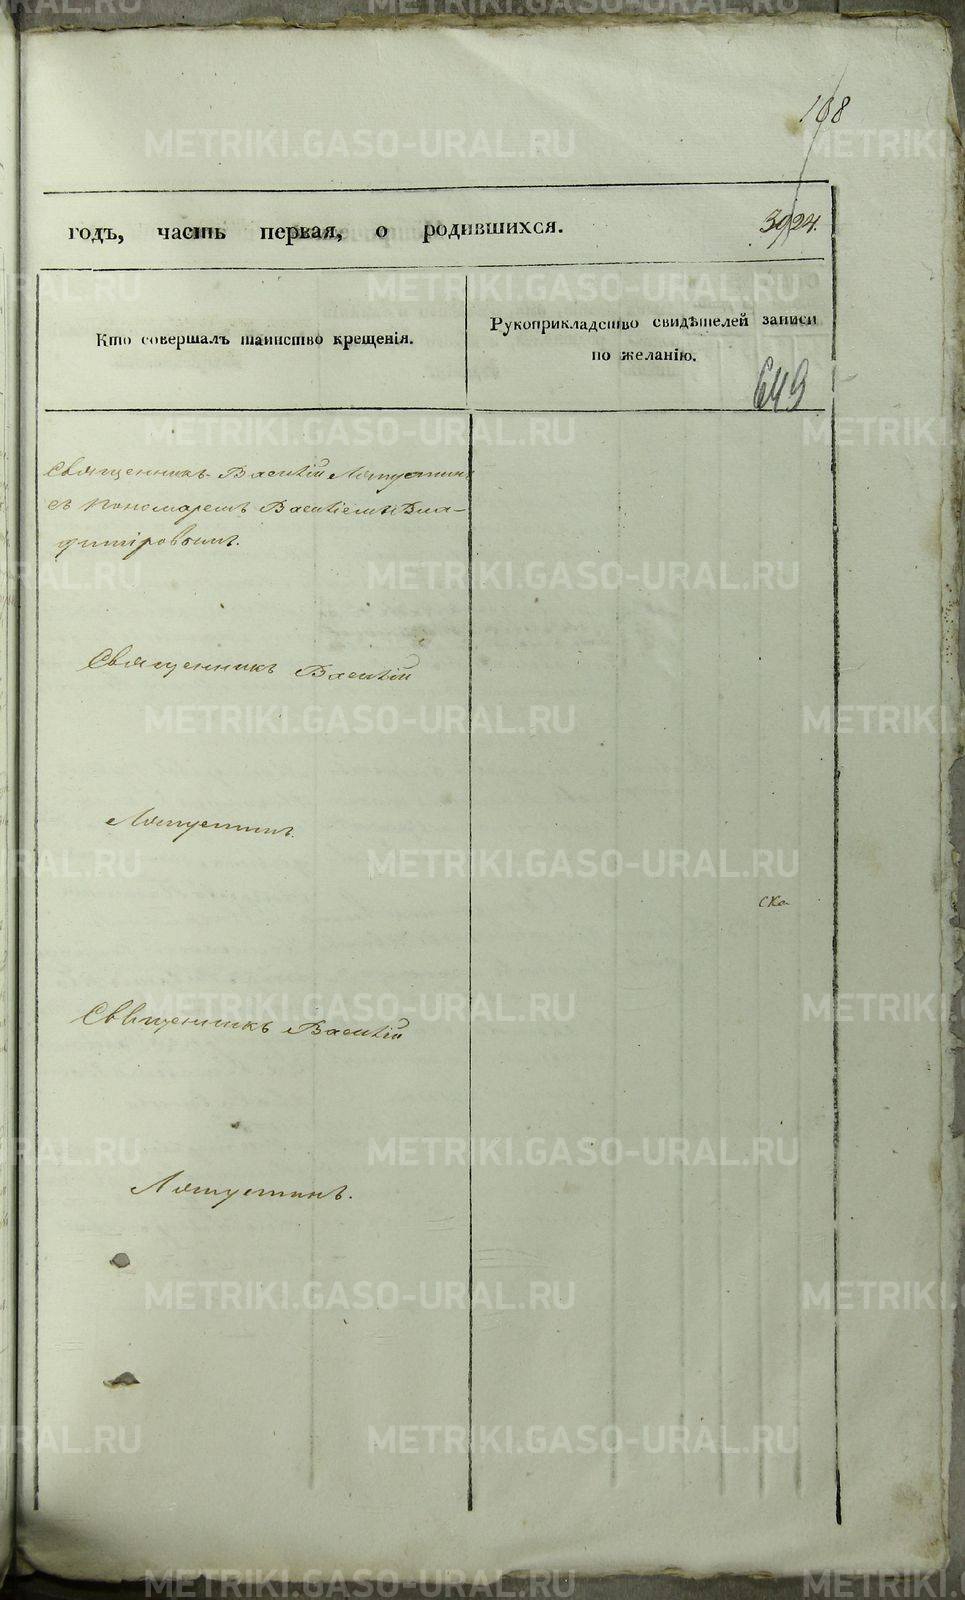 108
годъ, часть первая, о родившихся.
3924.
Кто совершалъ таинство крещенія.
Рукоприкладство свидѣтелей записи
по желанію.
649
Священникъ Василій Ляпустинъ
съ пономаремъ Василіемъ Вла-
димировымъ.
Священникъ Василій
Ляпустинъ.
ска
Священникъ Василій
Ляпустинъ.
METRIKI.GASO-URAL.RU